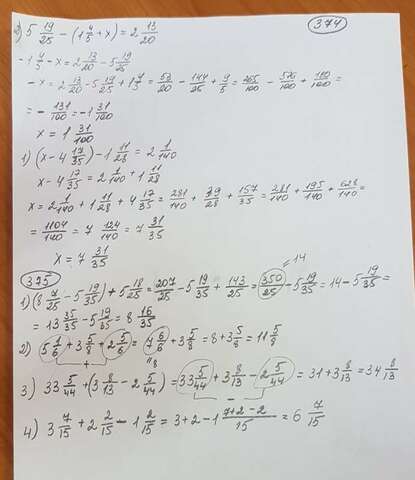 374
2) 5 19/25 - (1 4/5 + x) = 2 13/20
- 1 4/5 - x = 2 13/20 - 5 19/25
- x = 2 13/20 - 5 19/25 + 1 4/5 = 53/20 - 144/25 + 9/5 = 265/100 - 576/100 + 180/100 =
= - 131/100 = - 1 31/100
x = 1 31/100
1) (x - 4 17/35) - 1 11/28 = 2 1/140
x - 4 17/35 = 2 1/140 + 1 11/28
x = 2 1/140 + 1 11/28 + 4 17/35 = 281/140 + 39/28 + 157/35 = 281/140 + 195/140 + 628/140 =
= 1104/140 = 7 124/140 = 7 31/35
x = 7 31/35
375
= 14
1) (8 7/25 - 5 19/35) + 5 18/25 = 207/25 - 5 19/35 + 143/25 = 350/25 - 5 19/35 = 14 - 5 19/35 =
= 13 35/35 - 5 19/35 = 8 16/35
2) 5 1/6 + 3 5/8 + 2 5/6 = 7 6/6 + 3 5/8 = 8 + 3 5/8 = 11 5/8
+ 8
3) 33 5/44 + (3 8/13 - 2 5/44) = 33 5/44 + 3 8/13 - 2 5/44 = 31 + 3 8/13 = 34 8/13
-
4) 3 7/15 + 2 2/15 - 1 2/15 = 3 + 2 - 1 7+2-2/15 = 6 7/15